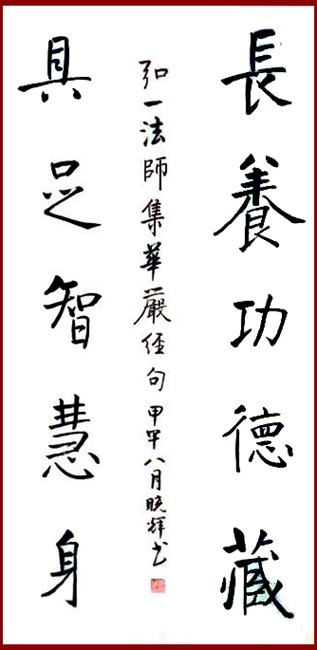 長養功德藏
弘一法師集華嚴經句甲午八月曉輝书
具足智慧身